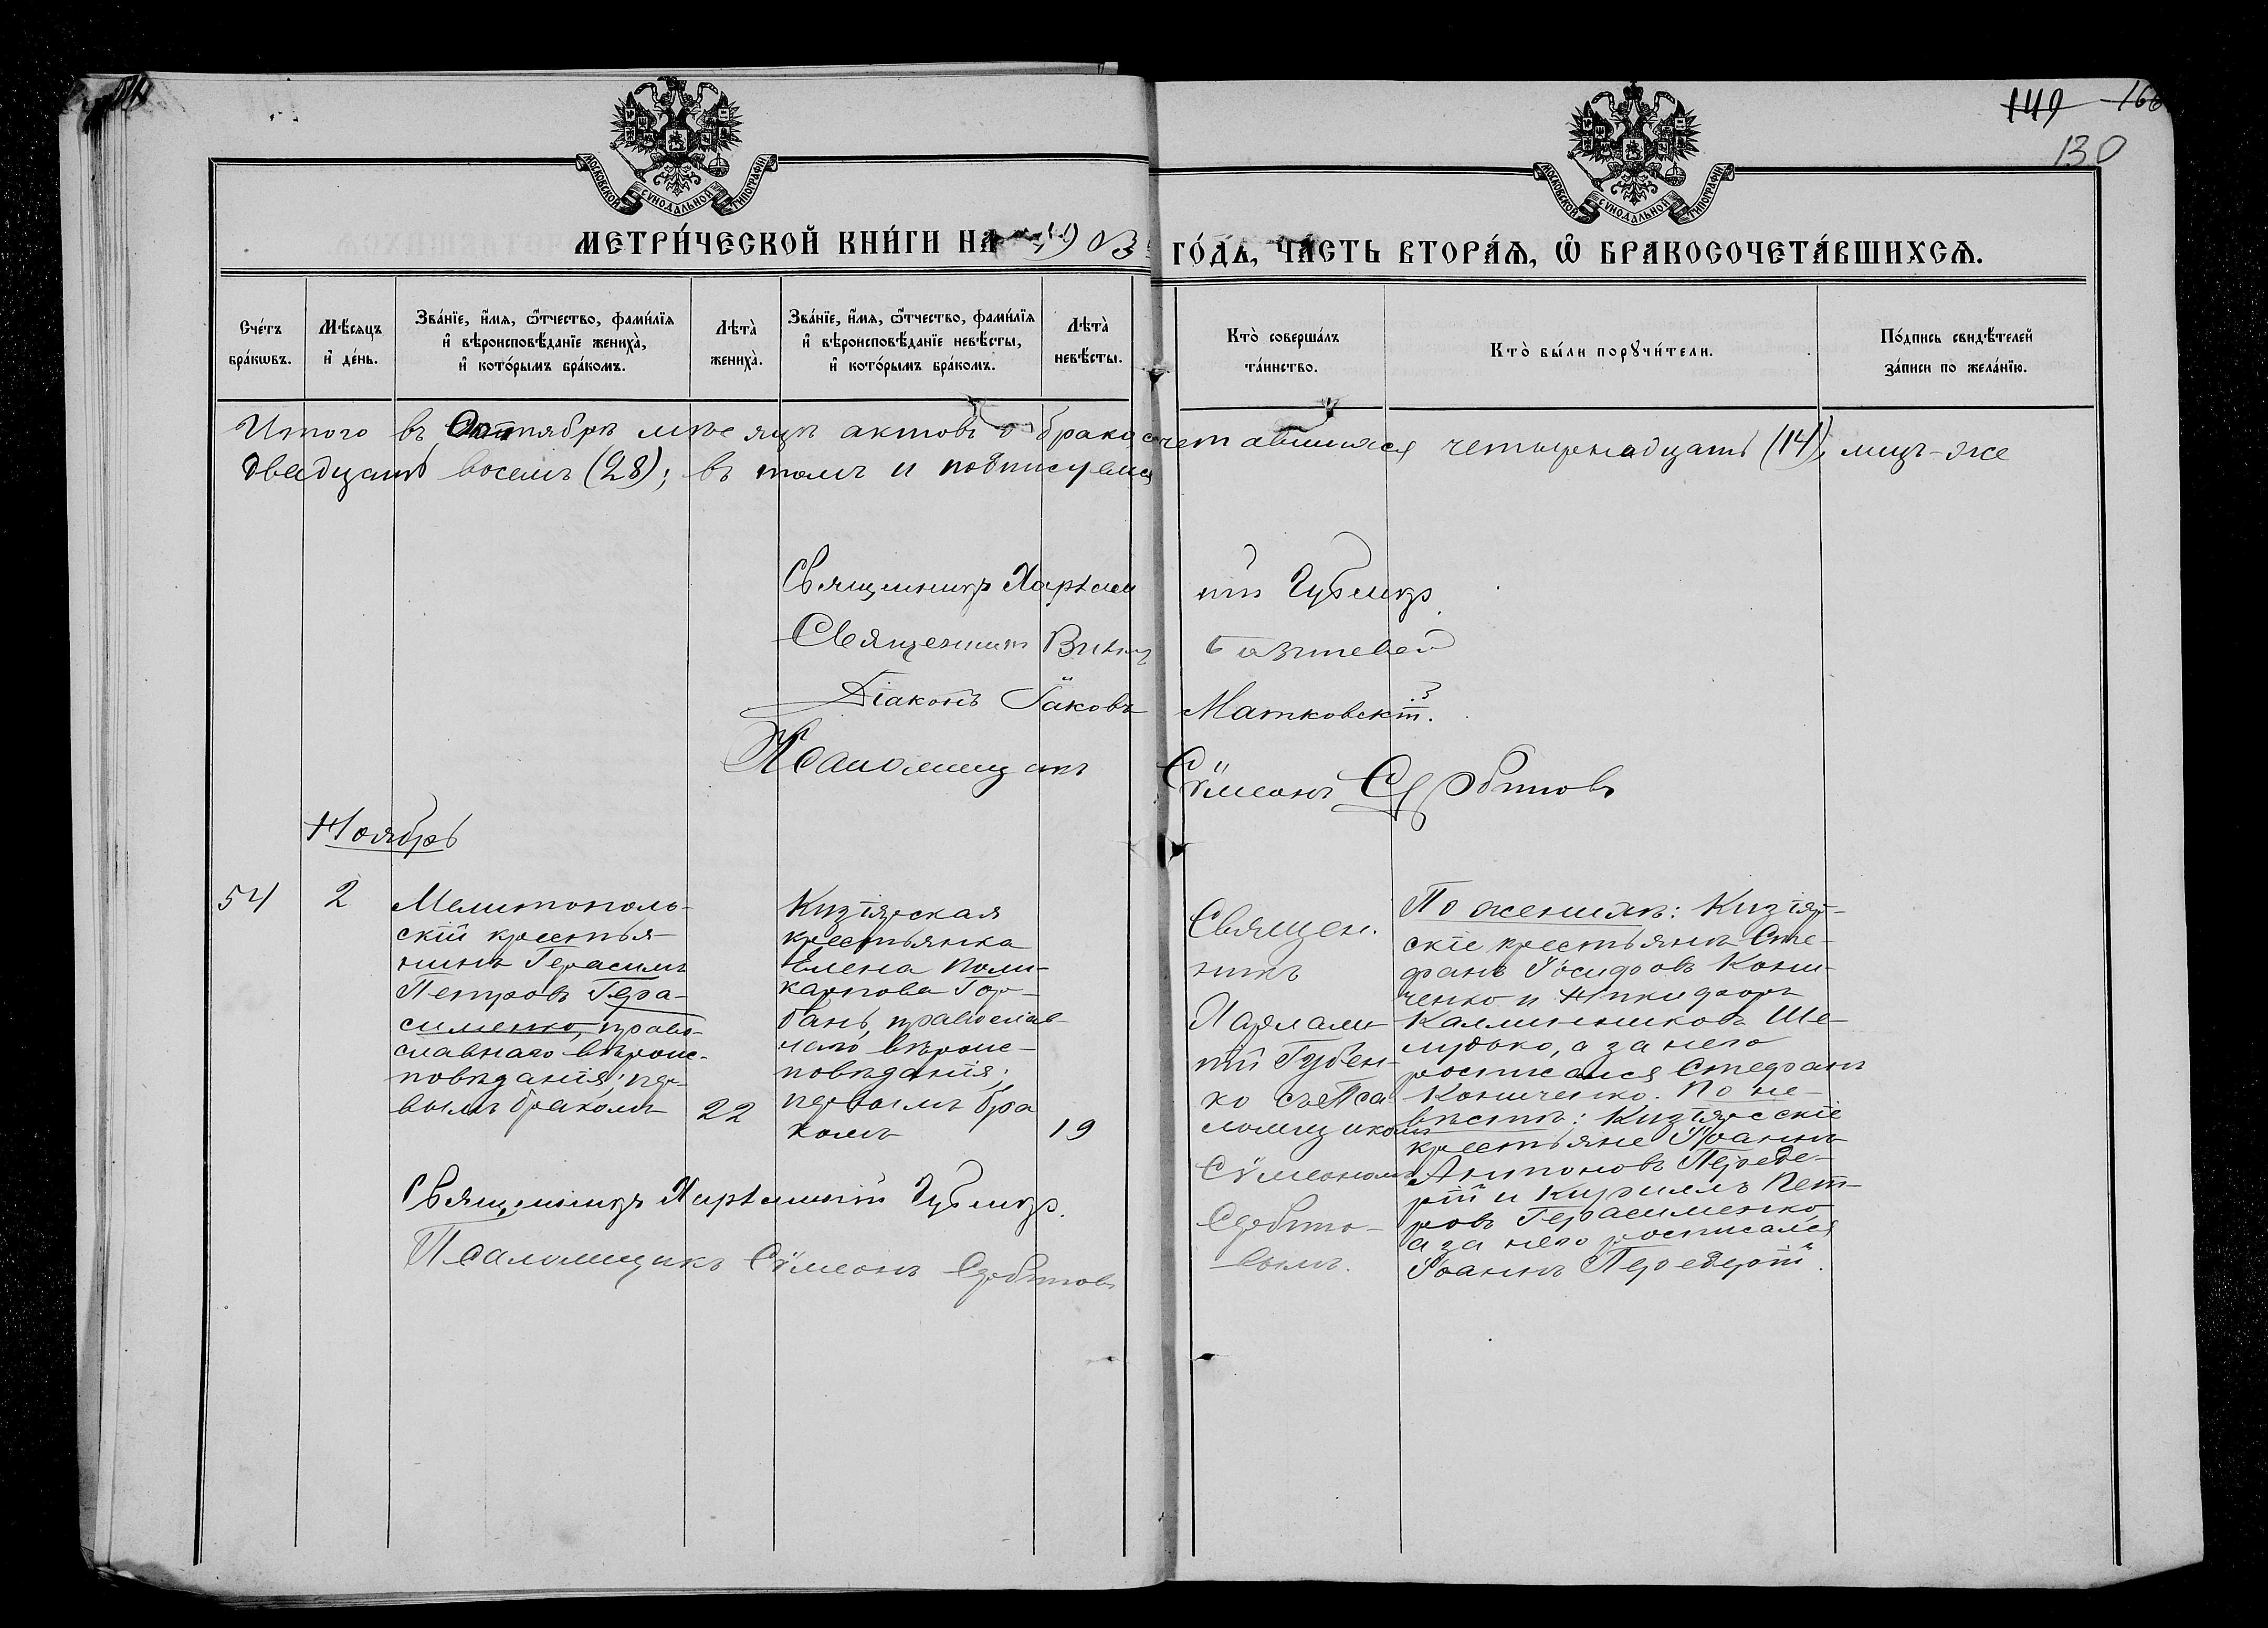 149 166
130
МОСКОВСКОЙ СѴНОДАЛЬНОЙ ТИПОГРАФІИ
МОСКОВСКОЙ СѴНОДАЛЬНОЙ ТИПОГРАФІИ
МЕТРИ́ЧЕСКОЙ КНИ́ГИ НА 1903 ГО́ДЪ, ЧА́СТЬ ВТОРА́Ѧ, Ѽ БРАКОСОЧЕТА́ВШИХСѦ.
Сче́тъ бра́кѡвъ.
Мѣ́сяцъ и҆ де́нь.
Зва́нїе, и҆́мя, ѻ҆́тчество, фами́лїя и҆ вѣроисповѣ́данїе жениха̀, и҆ кото́рымъ бра́комъ.
Лѣта̀ жениха̀.
Зва́нїе, и҆́мя, ѻ҆́тчество, фами́лїя и҆ вѣроисповѣ́данїе невѣ́сты, и҆ кото́рымъ бра́комъ.
Лѣта̀ невѣ́сты.
Кто̀ соверша́лъ та́инство.
Кто̀ бы́ли порꙋчи́тели.
По́дпись свидѣ́телей за́писи по жела́нїю.
Итого въ Октябрѣ мѣсяцѣ актовъ о бракосочетавшихся четырнадцать (14), лицъ-же
двадцать восемь (28); въ томъ и подписуемся
Священникъ Харлампій Губенко
Священникъ
Діаконъ Іаковъ Матковскій.
Псаломщикъ Сѵмеонъ Сербиновъ
Ноябрь
54
2
Мелитополь-
скій крестья-
нинъ Герасимъ
Петровъ Гера-
сименко, право-
славнаго вѣроис-
повѣданія; пер-
вымъ бракомъ
22
Кизіярская
крестьянка
Елена Поли-
карпова Гор-
бань, православ-
наго вѣроис-
повѣданія;
первымъ бра
комъ
19
Священ.
никъ
Харлам-
пій Губен-
ко съ Пса
ломщикомъ
Сѵмеономъ
Сербино-
вымъ.
По женихѣ: Кизіяр-
скіе крестьяне Сте-
фанъ Іосифовъ Кони-
ченко и Никифоръ
Каллинниковъ Ше-
лудько, а за него
росписался Стефанъ
Кониченко. По не-
вѣстѣ: Кизіярскіе
крестьяне Іоаннъ
Антоновъ Переде-
рій и Кириллъ Пет-
ровъ Герасименко
а за него росписался
Іоаннъ Передерій.
Священникъ Харлампій Губенко.
Псаломщикъ Сѵмеонъ Сербиновъ